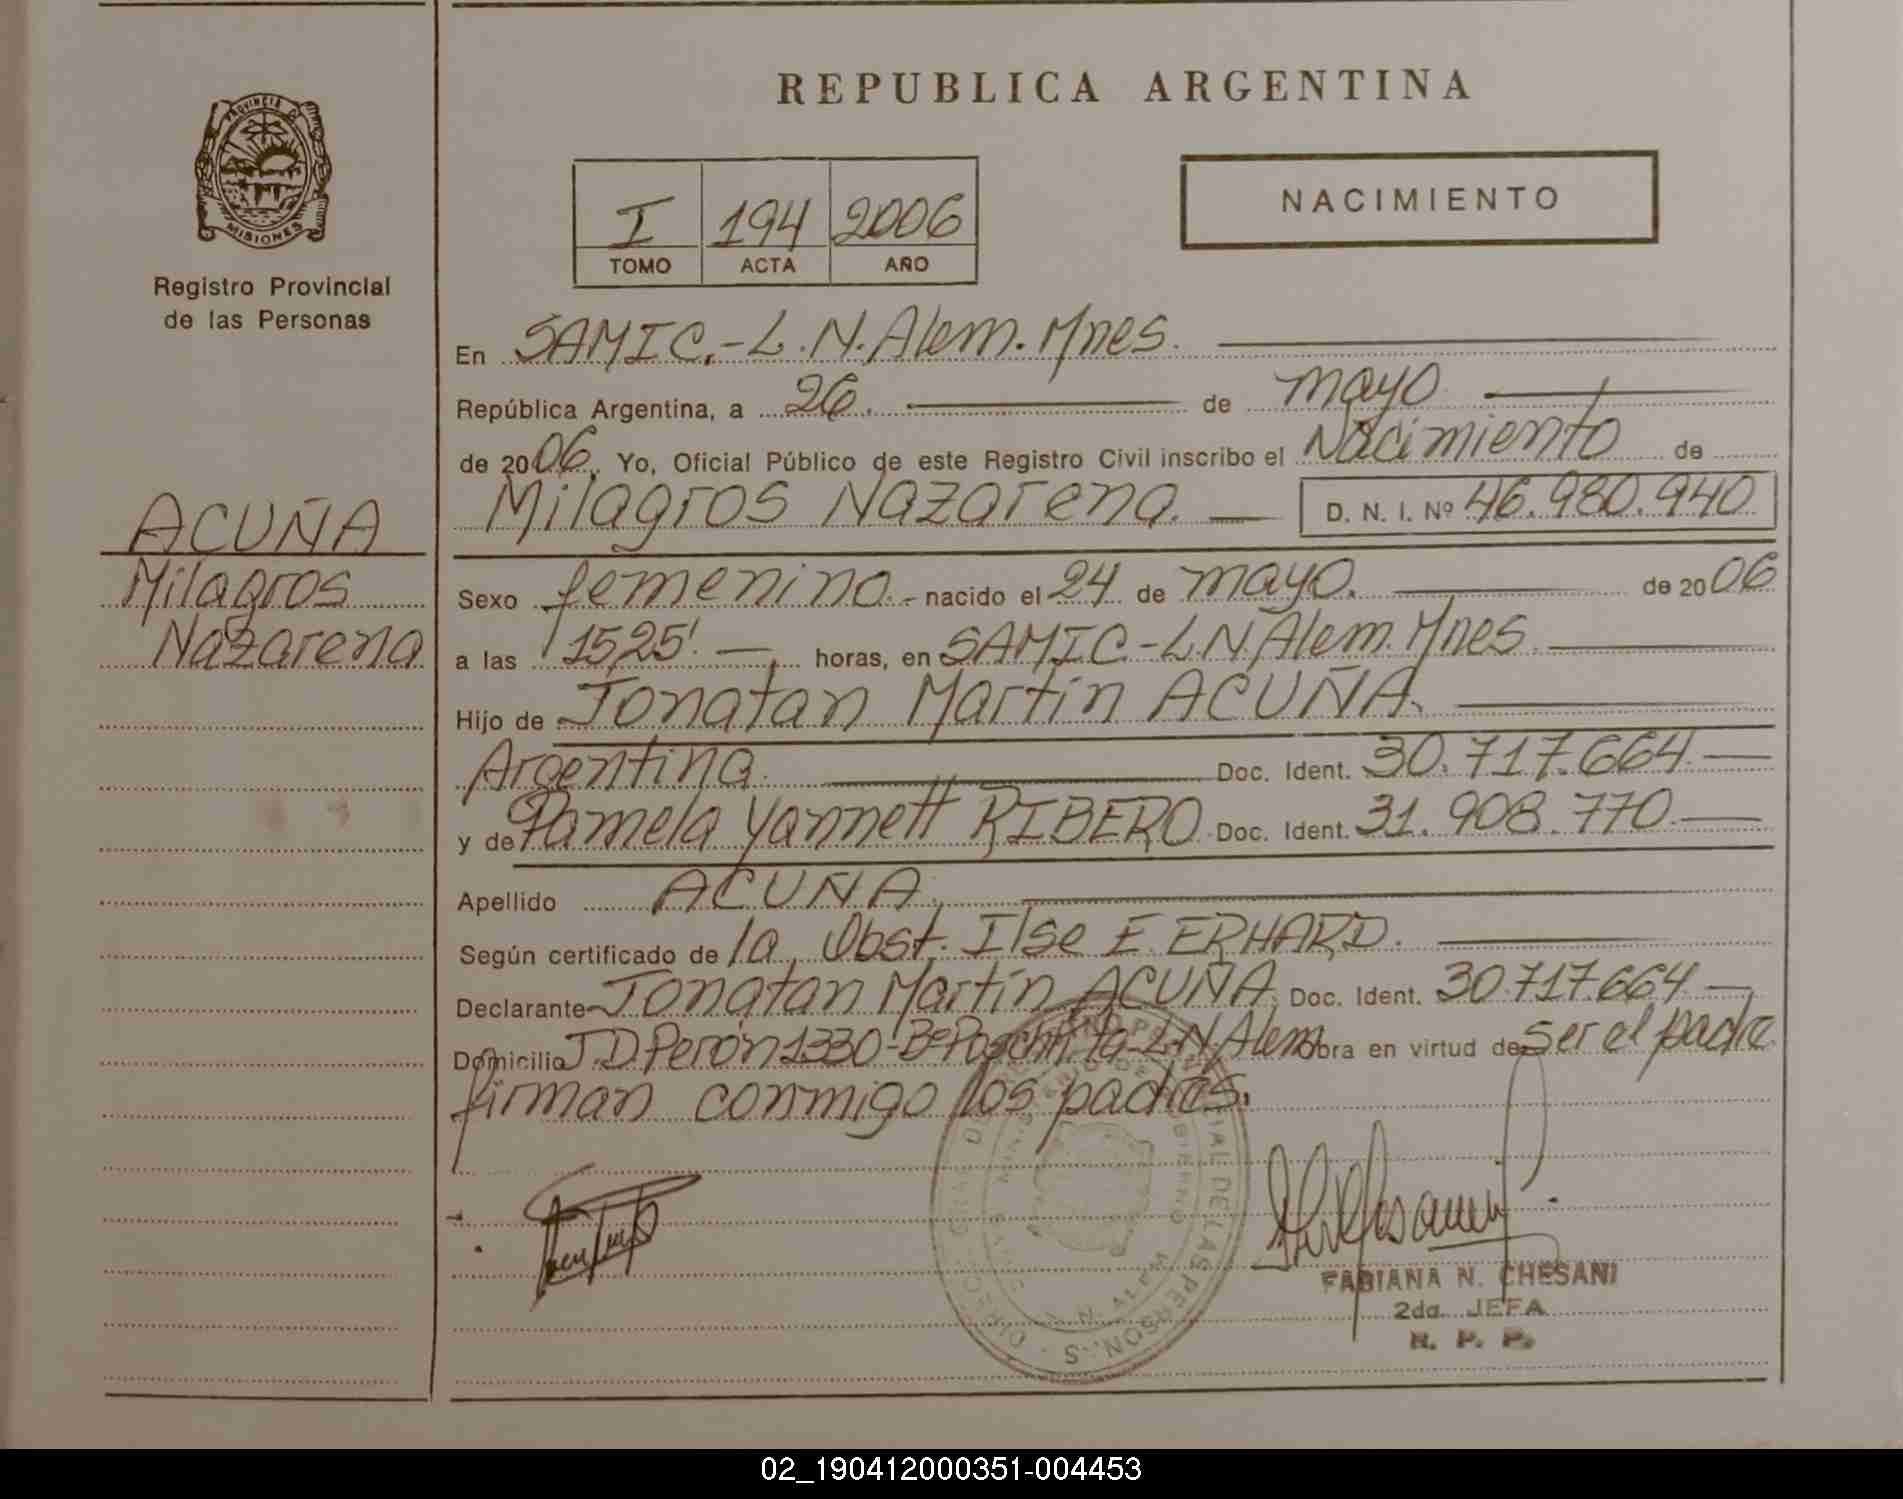 REPUBLICA ARGENTINA
PROVINCIA DE
MISIONES
Registro Provincial
de las Personas
I 194 2006
TOMO ACTA AÑO
NACIMIENTO
ACUÑA
Milagros
Nazarena
En SAMIC.-L.N.Alem.Mnes.
República Argentina, a 26. de mayo
de 2006. Yo, Oficial Público de este Registro Civil inscribo el Nacimiento de
Milagros Nazarena. D. N. I. Nº 46.980.940
Sexo femenino.- nacido el 24 de mayo. de 2006
a las 1525' horas, en SAMIC.-L.N.Alem.Mnes.
Hijo de Jonatan Martín ACUÑA.
Argentina. Doc. Ident. 30.717.664
y de Pamela Yannett RIBERO Doc. Ident. 31.908.770
Apellido ACUÑA.
Según certificado de la Obst. Ilse E. ERHARD.
Declarante Jonatan Martín ACUÑA. Doc. Ident. 30.717.664
Domicilio J.D.Perón 1330-Bº -L.N.Alem Obra en virtud de ser el padre
firman conmigo los padres.
L. N. ALEM
FABIANA N. CHESANI
2da. JEFA
R. P. P.
02_190412000351-004453